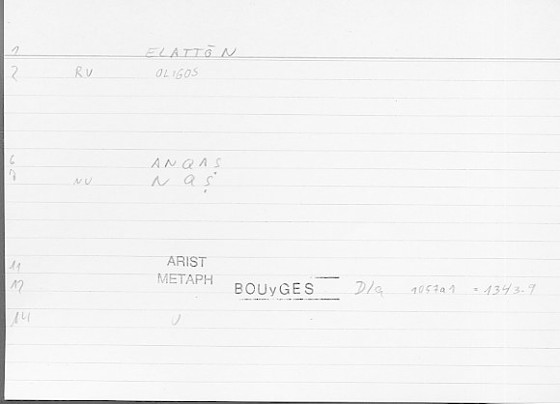 1 ELATTŌN
2 RV OLIGOS
6 ANQAṢ
7 NV NQṢ
11 ARIST
METAPH
12 BOUyGES D/a 1057a1 = 1343-9
14 U